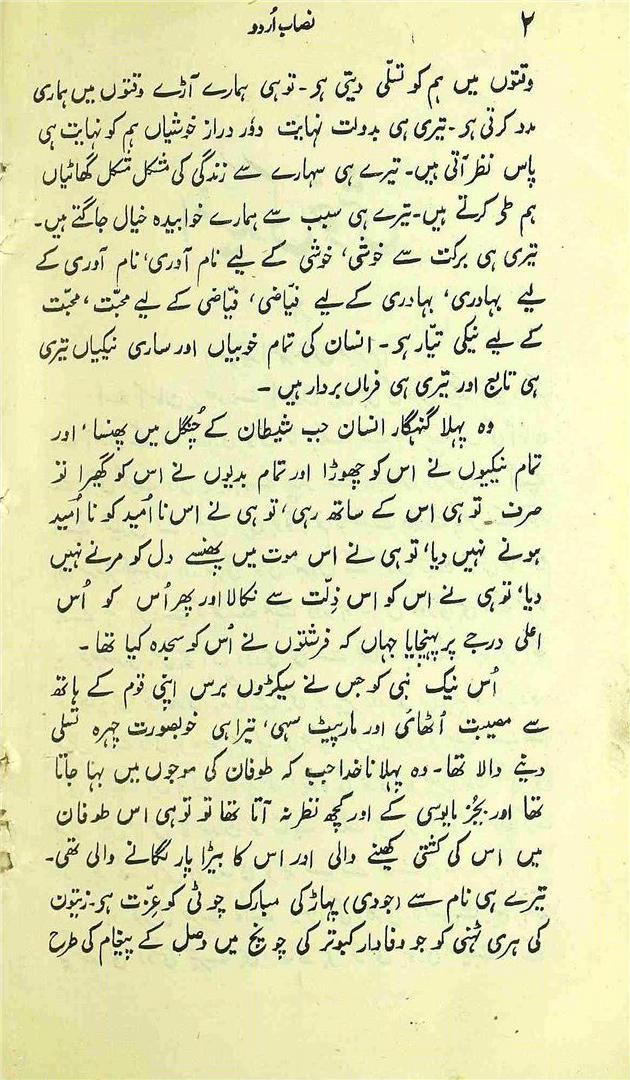 ۲
نصاب اُردو
وقتوں میں ہم کو تسلّی دیتی ہو ۔ تو ہی ہمارے آڑے وقتوں میں ہماری
مدد کرتی ہو ۔ تیری ہی بدولت نہایت دور دراز خوشیاں ہم کو نہایت ہی
پاس نظر آتی ہیں ۔ تیرے ہی سہارے سے زندگی کی مشکل مشکل گھاٹیاں
ہم طی کرتے ہیں ۔ تیرے ہی سبب سے ہمارے خوابیدہ خیال جاگتے ہیں ۔
تیری ہی برکت سے خوشی، خوشی کے لیے نام آوری، نام آوری کے
لیے بہادری، بہادری کے لیے فیّاضی، فیّاضی کے لیے محبّت، محبّت
کے لیے نیکی تیّار ہو ۔ انسان کی تمام خوبیاں اور ساری نیکیاں تیری
ہی تابع اور تیری ہی فرماں بردار ہیں ۔
وہ پہلا گنہگار انسان جب شیطان کے چُنگل میں پھنسا، اور
تمام نیکیوں نے اس کو چھوڑا اور تمام بدیوں نے اس کو گھیرا تو
صرف تو ہی اس کے ساتھ رہی، تو ہی نے اس نا اُمید کو نا اُمید
ہونے نہیں دیا، تو ہی نے اس موت میں پھنسے دل کو مرنے نہیں
دیا، تو ہی نے اس کو اس ذِلّت سے نکالا اور پھر اُس کو اُس
اعلی درجے پر پہنچایا جہاں کہ فرشتوں نے اُس کو سجدہ کیا تھا ۔
اُس نیک نبی کو جس نے سیکڑوں برس اپنی قوم کے ہاتھ
سے مصیبت اُٹھائی اور مار پیٹ سہی، تیرا ہی خوبصورت چہرہ تسلی
دینے والا تھا ۔ وہ پہلا ناخدا جب کہ طوفان کی موجوں میں بہا جاتا
تھا اور بجُز مایوسی کے اور کچھ نظر نہ آتا تھا تو تو ہی اس طوفان
میں اس کی کشتی کھینے والی اور اس کا بیڑا پار لگانے والی تھی ۔
تیرے ہی نام سے (جودی) پہاڑ کی مبارک چوٹی کو عِزّت ہو ۔ زیتون
کی ہری ٹہنی کو جو وفادار کبوتر کی چونچ میں وصل کے پیغام کی طرح